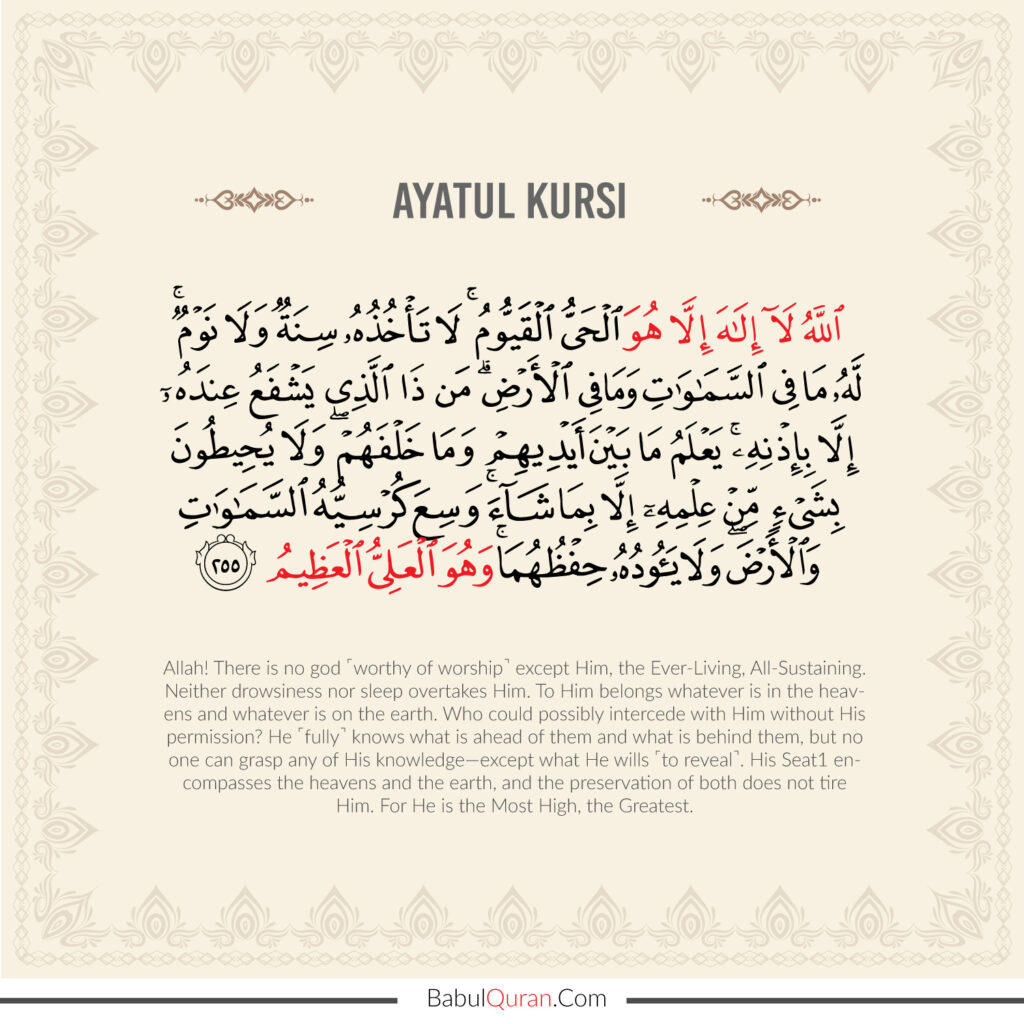 AYATUL KURSI
ٱللَّهُ لَآ إِلَـٰهَ إِلَّا هُوَ ٱلْحَىُّ ٱلْقَيُّومُ ۚ لَا تَأْخُذُهُۥ سِنَةٌ وَلَا نَوْمٌ ۚ
لَّهُۥ مَا فِى ٱلسَّمَـٰوَٰتِ وَمَا فِى ٱلْأَرْضِ ۗ مَن ذَا ٱلَّذِى يَشْفَعُ عِندَهُۥٓ
إِلَّا بِإِذْنِهِۦ ۚ يَعْلَمُ مَا بَيْنَ أَيْدِيهِمْ وَمَا خَلْفَهُمْ ۖ وَلَا يُحِيطُونَ
بِشَىْءٍ مِّنْ عِلْمِهِۦٓ إِلَّا بِمَا شَآءَ ۚ وَسِعَ كُرْسِيُّهُ ٱلسَّمَـٰوَٰتِ
وَٱلْأَرْضَ ۖ وَلَا يَـُٔودُهُۥ حِفْظُهُمَا ۚ وَهُوَ ٱلْعَلِىُّ ٱلْعَظِيمُ ٢٥٥
Allah! There is no god ˹worthy of worship˺ except Him, the Ever-Living, All-Sustaining.
Neither drowsiness nor sleep overtakes Him. To Him belongs whatever is in the heav-
ens and whatever is on the earth. Who could possibly intercede with Him without His
permission? He ˹fully˺ knows what is ahead of them and what is behind them, but no
one can grasp any of His knowledge—except what He wills ˹to reveal˺. His Seat1 en-
compasses the heavens and the earth, and the preservation of both does not tire
Him. For He is the Most High, the Greatest.
BabulQuran.Com